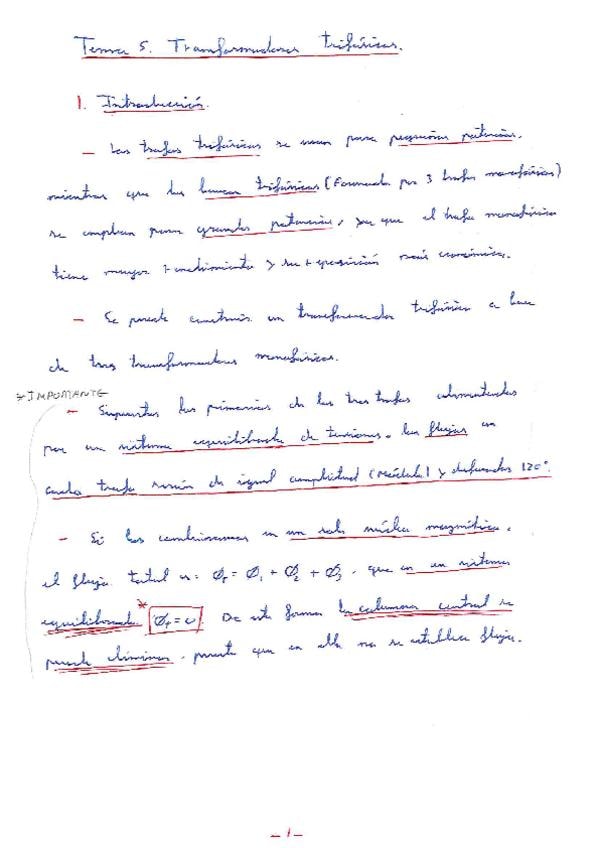 Tema 5. Transformadores trifásicos.
1. Introducción.
- Los trafos trifásicos se usan para pequeñas potencias,
mientras que los bancos trifásicos (Formados por 3 trafos monofásicos)
se emplean para grandes potencias, ya que el trafo monofásico
tiene mayor rendimiento y su reposición más económica.
- Se puede construir un transformador trifásico a base
de tres transformadores monofásicos.
* IMPORTANTE
- Supuestos los primarios de los tres trafos alimentados
por un sistema equilibrado de tensiones, los flujos en
cada trafo serán de igual amplitud (Módulo) y desfasados 120°.
- Si los combinamos en un solo núcleo magnético,
el flujo total es: Ø_T = Ø_1 + Ø_2 + Ø_3, que en un sistema
equilibrado * Ø_T = 0. De esta forma la columna central se
puede eliminar, puesto que en ella no se establece flujo.
- 1 -